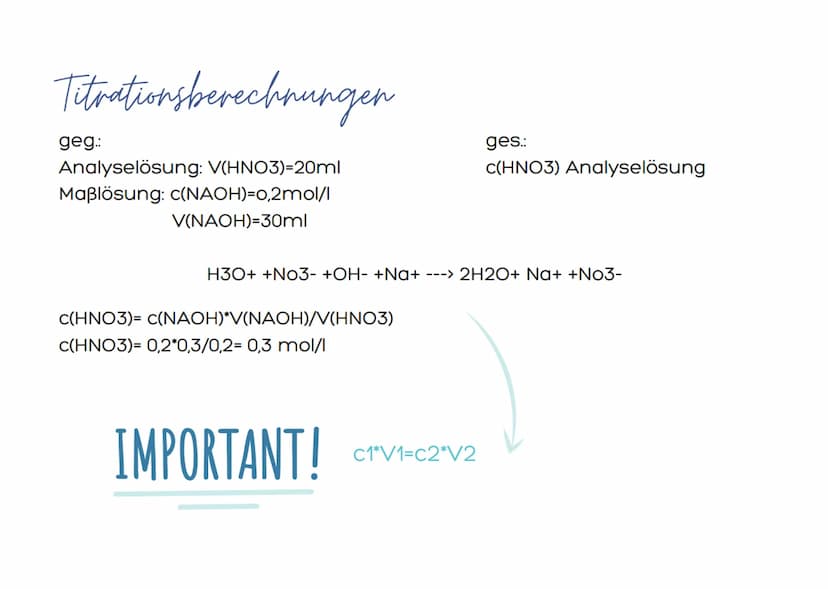 Titrationsberechnungen
geg.:
Analyselösung: V(HNO3)=20ml
Maβlösung: c(NAOH)=o,2mol/l
V(NAOH)=30ml
ges.:
c(HNO3) Analyselösung
H3O+ +No3- +OH- +Na+ ---> 2H2O+ Na+ +No3-
c(HNO3)= c(NAOH)*V(NAOH)/V(HNO3)
c(HNO3)= 0,2*0,3/0,2= 0,3 mol/l
IMPORTANT!
c1*V1=c2*V2